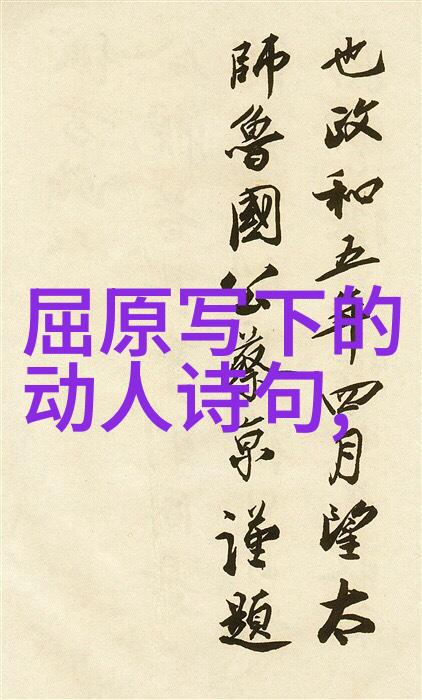 也政和五年四月望太
師魯國公蔡京謹題
屈原写下的
动人诗句,